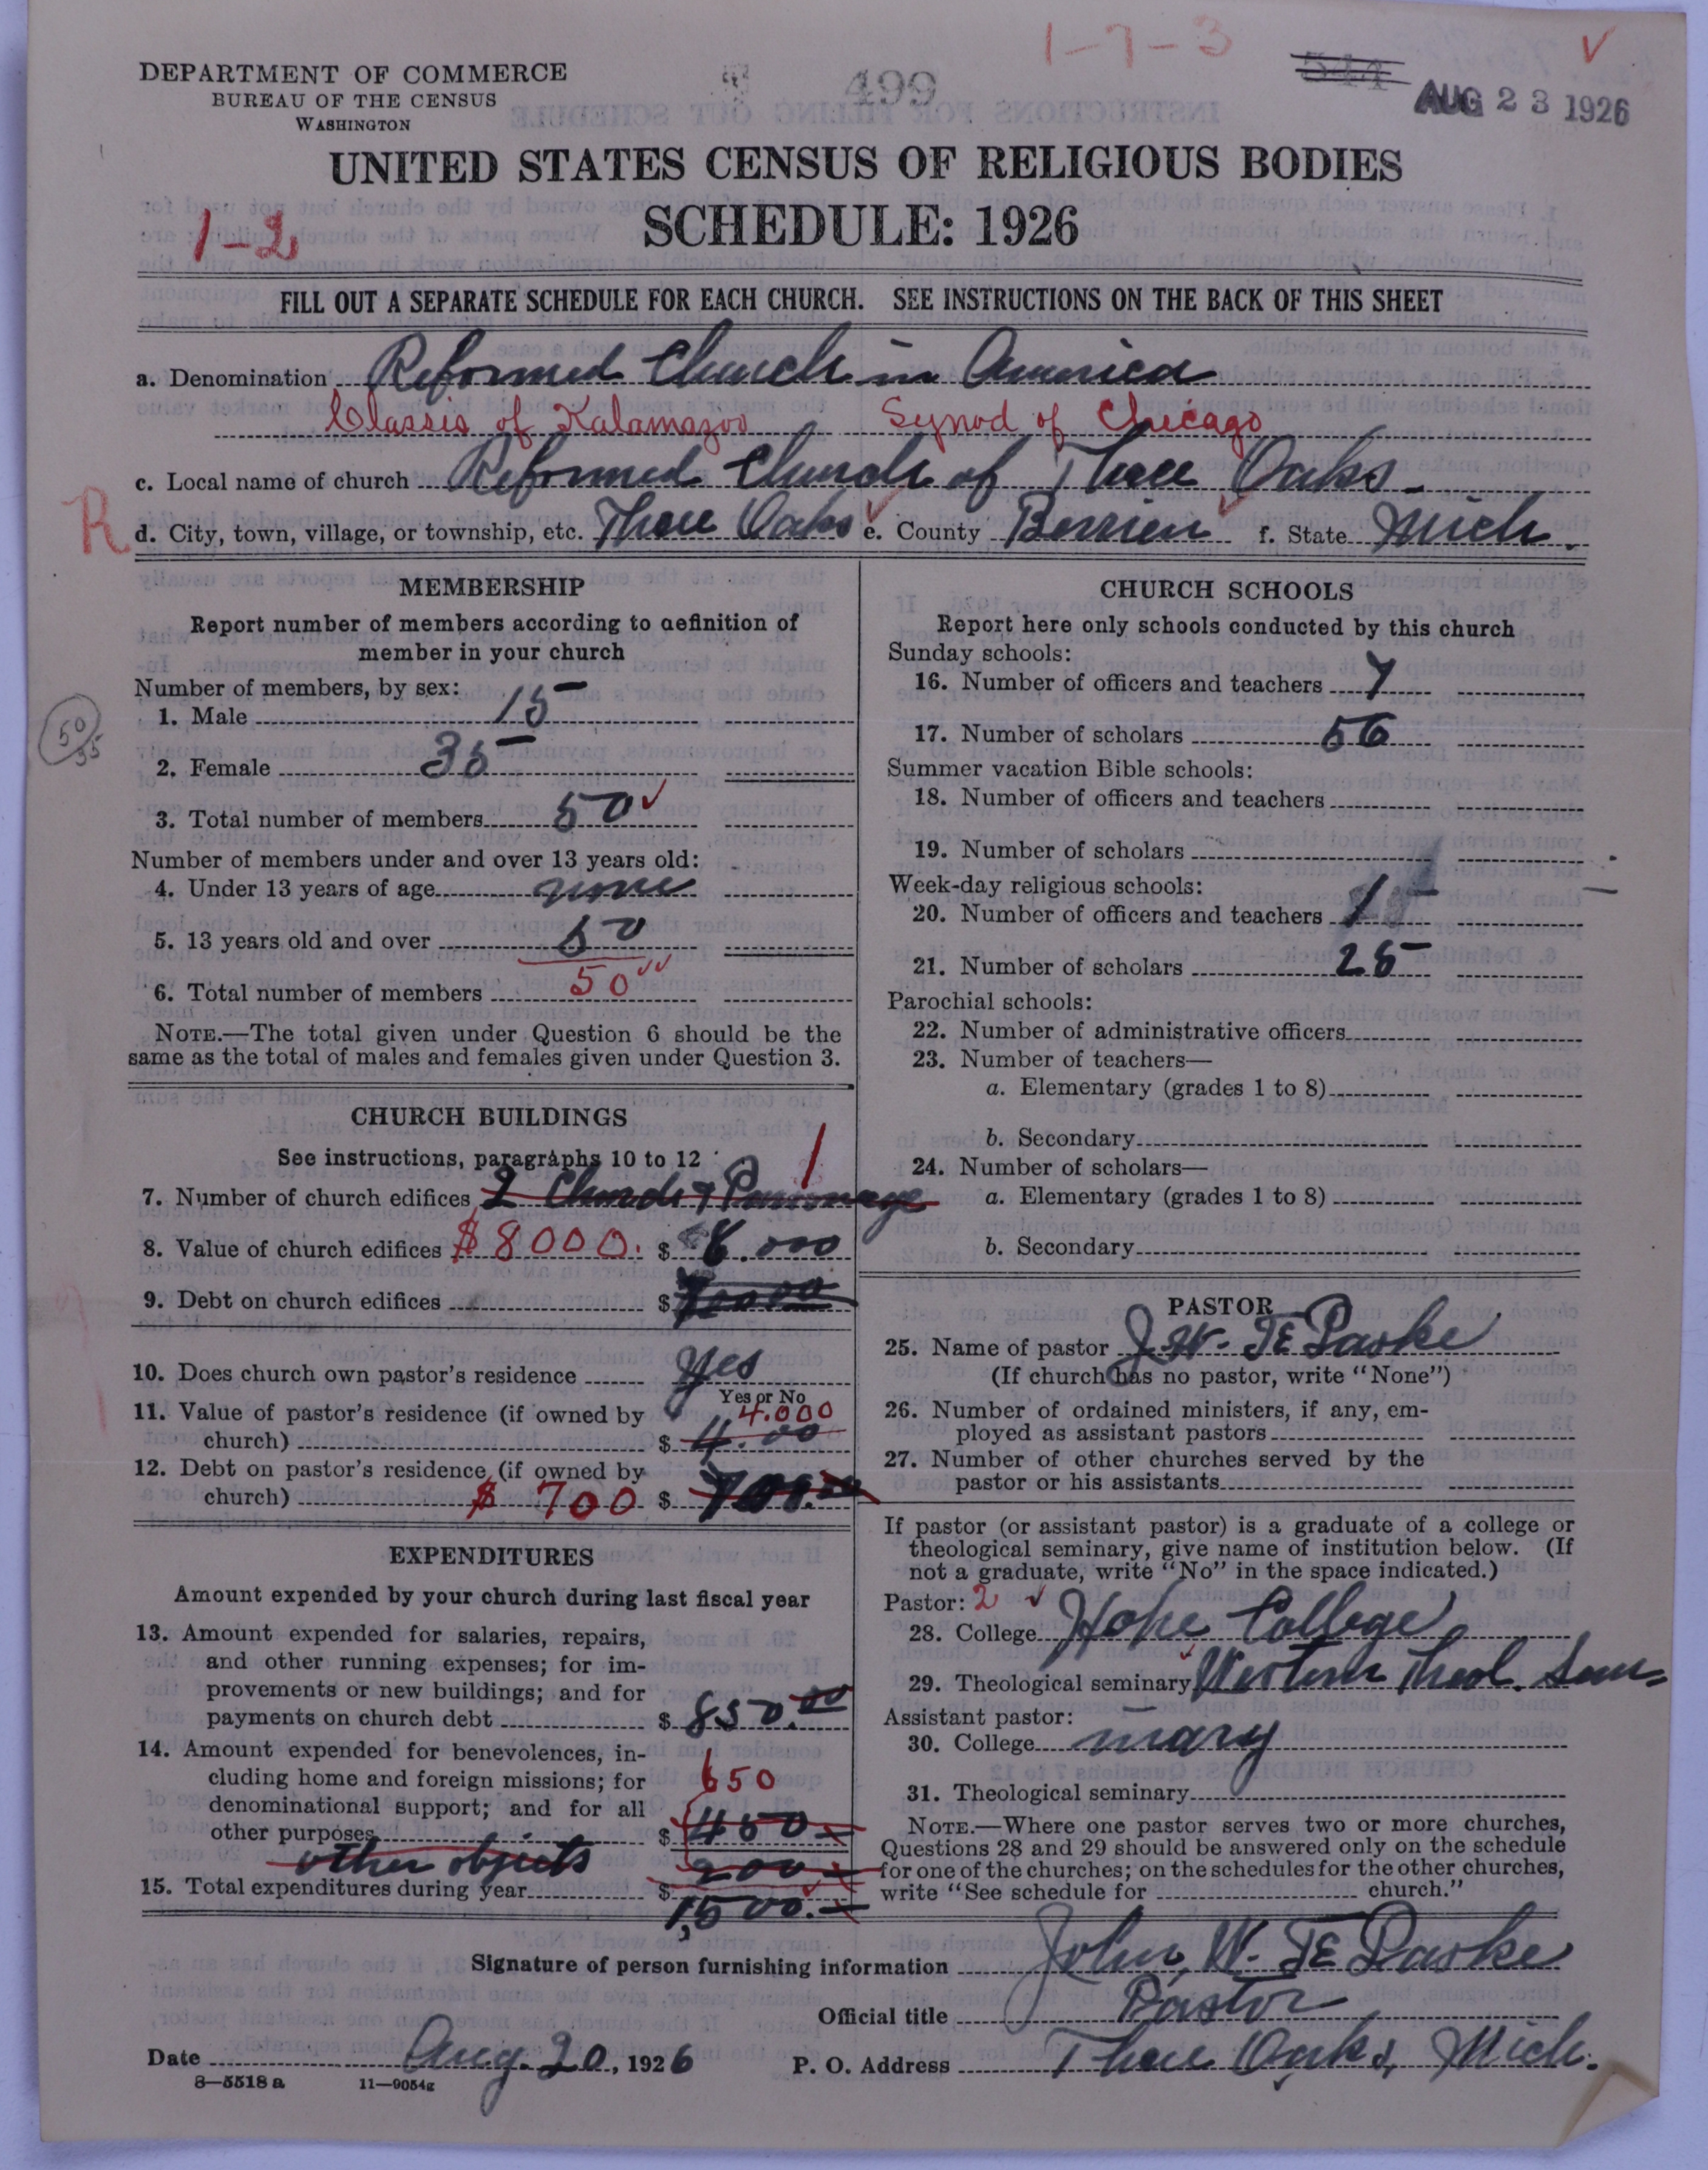 1-7-3
DEPARTMENT OF COMMERCE
BUREAU OF THE CENSUS
WASHINGTON
499
544
AUG 23 1926
UNITED STATES CENSUS OF RELIGIOUS BODIES
SCHEDULE: 1926
1-2
FILL OUT A SEPARATE SCHEDULE FOR EACH CHURCH. SEE INSTRUCTIONS ON THE BACK OF THIS SHEET
a. Denomination Reformed Church in America
Classis of Kalamazoo Synod of Chicago
c. Local name of church Reformed Church of Three Oaks
R
d. City, town, village, or township, etc. Three Oaks e. County Berrien f. State Mich.
MEMBERSHIP
Report number of members according to definition of
member in your church
Number of members, by sex:
1. Male 15
50/35
2. Female 35
3. Total number of members 50
Number of members under and over 13 years old:
4. Under 13 years of age none
5. 13 years old and over 50
6. Total number of members 50
NOTE.—The total given under Question 6 should be the
same as the total of males and females given under Question 3.
CHURCH BUILDINGS
See instructions, paragraphs 10 to 12
7. Number of church edifices 2 Church & Parsonage 1
8. Value of church edifices $8000. $ 8.000
9. Debt on church edifices $
10. Does church own pastor's residence yes
Yes or No
11. Value of pastor's residence (if owned by
church) $ 4.00 4.000
12. Debt on pastor's residence (if owned by
church) $ 700 $ 700.00
EXPENDITURES
Amount expended by your church during last fiscal year
13. Amount expended for salaries, repairs,
and other running expenses; for im-
provements or new buildings; and for
payments on church debt $ 850.00
14. Amount expended for benevolences, in-
cluding home and foreign missions; for
denominational support; and for all
other purposes $ 450 650
other objects 200
15. Total expenditures during year $ 1,500.
CHURCH SCHOOLS
Report here only schools conducted by this church
Sunday schools:
16. Number of officers and teachers 7
17. Number of scholars 56
Summer vacation Bible schools:
18. Number of officers and teachers
19. Number of scholars
Week-day religious schools:
20. Number of officers and teachers 1
21. Number of scholars 25
Parochial schools:
22. Number of administrative officers
23. Number of teachers—
a. Elementary (grades 1 to 8)
b. Secondary
24. Number of scholars—
a. Elementary (grades 1 to 8)
b. Secondary
PASTOR
25. Name of pastor J. W. TE Paske
(If church has no pastor, write "None")
26. Number of ordained ministers, if any, em-
ployed as assistant pastors
27. Number of other churches served by the
pastor or his assistants
If pastor (or assistant pastor) is a graduate of a college or
theological seminary, give name of institution below. (If
not a graduate, write "No" in the space indicated.)
Pastor: 2
28. College Hope College
29. Theological seminary Western Theol. Sem=
Assistant pastor:
30. College inary
31. Theological seminary
NOTE.—Where one pastor serves two or more churches,
Questions 28 and 29 should be answered only on the schedule
for one of the churches; on the schedules for the other churches,
write "See schedule for church."
Signature of person furnishing information John W. TE Paske
Official title Pastor
Date Aug. 20, 1926 P. O. Address Three Oaks, Mich.
8—5518 a 11—9054g